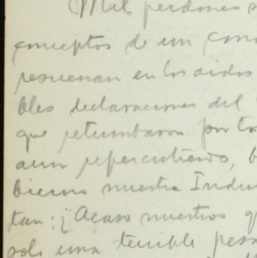 Mil perdones s
conceptos de un cono
resuenan en los oidos
bles declaraciones del
que retumbaron por to
aun repercutiendo, b
bierno nuestra Inde
tan: ¡Acaso nuestros q
solo una terrible pesa